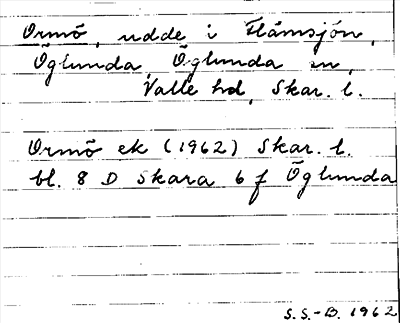 Ormö, udde i Flämsjön,
Öglunda, Öglunda sn,
Valle hd, Skar. l.
Ormö ek (1962) Skar. l.
bl. 8 D Skara 6 f Öglunda
S.S.-B. 1962